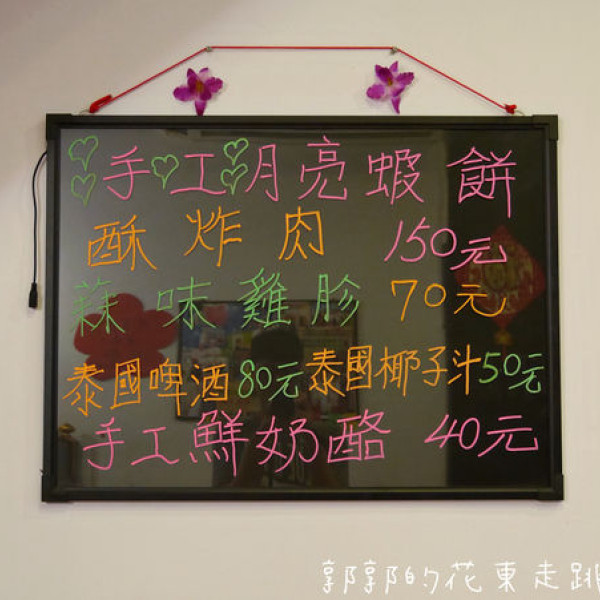 手工月亮蝦餅
酥炸肉 150元
蒜味雞胗 70元
泰國啤酒80元泰國椰子汁50元
手工鮮奶酪 40元
郭郭的花東走跳